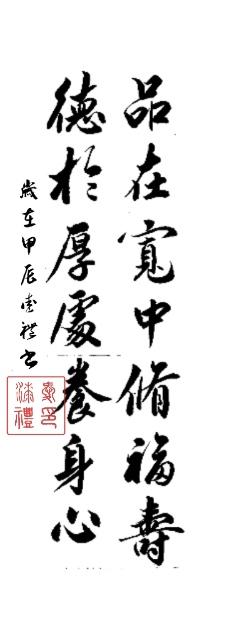 品在寬中脩福壽
德於厚處養身心
歲在甲辰禮書